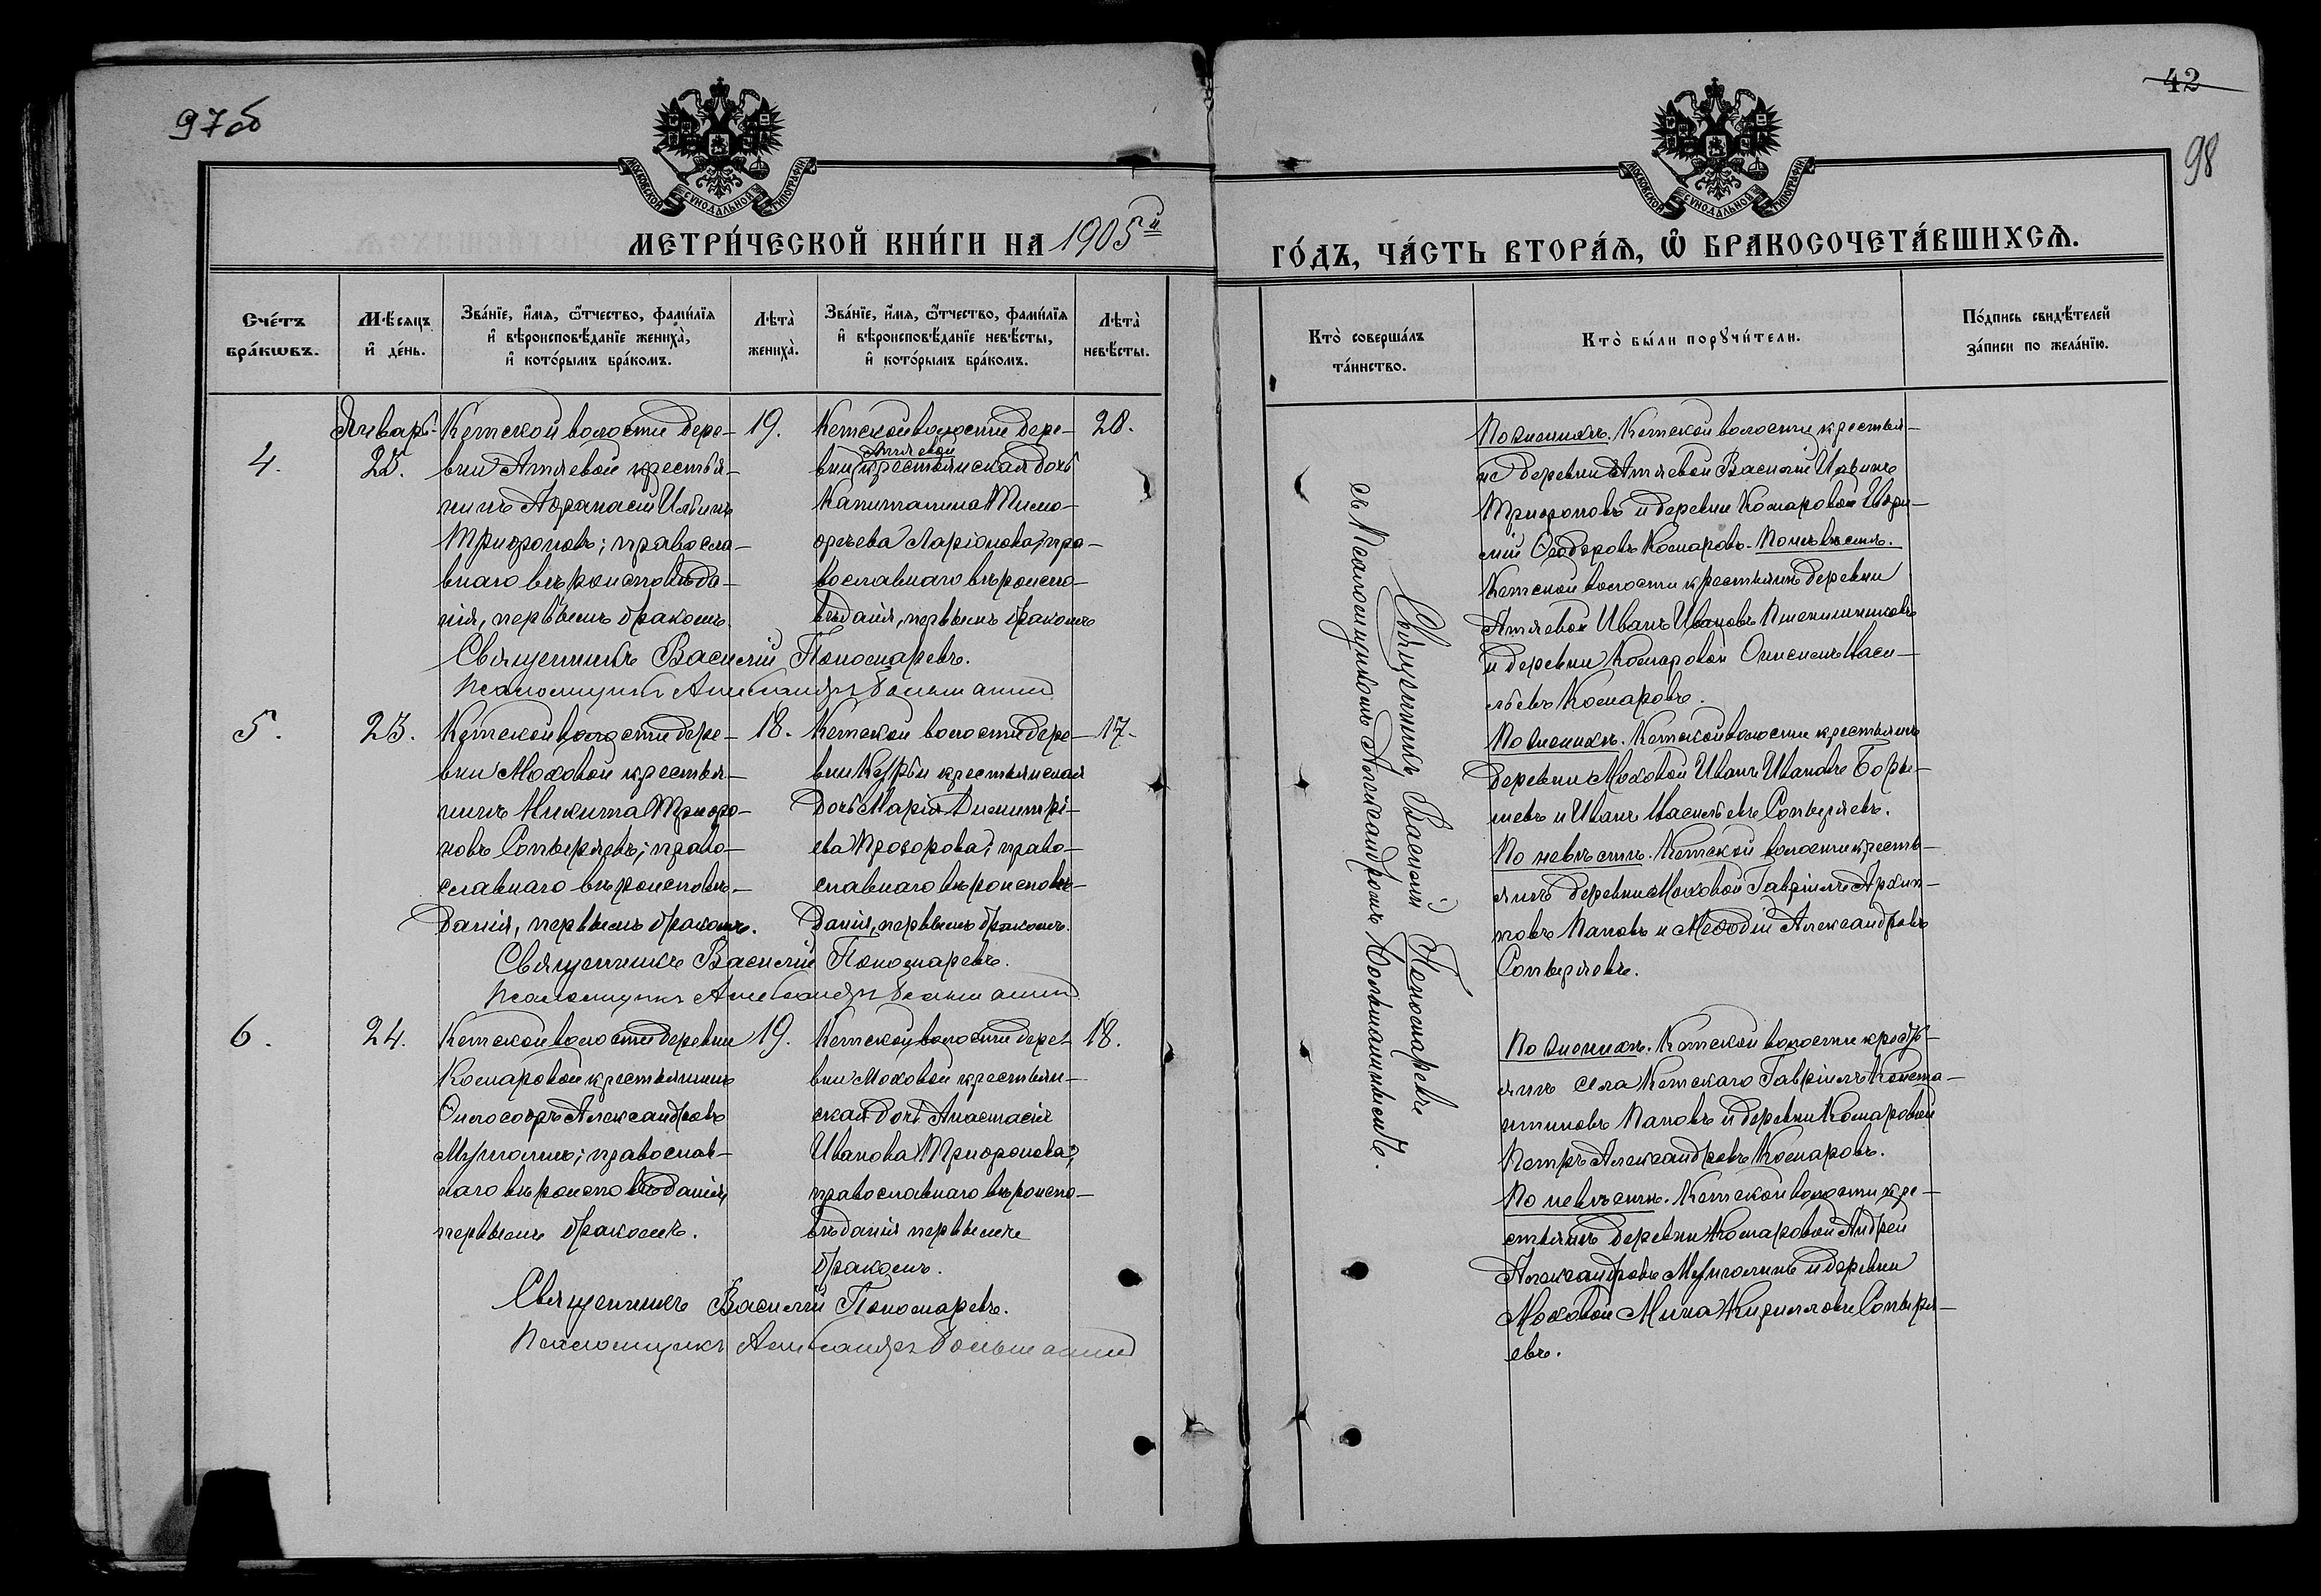 97об
МОСКОВСКОЙ СУНОДАЛЬНОЙ ТИПОГРАФІИ
МЕТРИ́ЧЕСКОЙ КНИ́ГИ НА 1905й
Сче́тъ бра́кѡвъ.
Мѣ́сяцъ и҆ де́нь.
Зва́нїе, и҆́мя, ѻ҆́тчество, фами́лїя и҆ вѣроисповѣ́данїе жениха̀, и҆ кото́рымъ бра́комъ.
Лѣта̀ жениха̀.
Зва́нїе, и҆́мя, ѻ҆́тчество, фами́лїя и҆ вѣроисповѣ́данїе невѣ́сты, и҆ кото́рымъ бра́комъ.
Лѣта̀ невѣ́сты.
4.
Январь
Кетской волости дере-
вни Атяевой крестья-
нинъ Афанасій Ильинъ
Трифоновъ; правосла-
внаго вѣроисповѣда-
нія, первымъ бракомъ.
19.
Кетской волости дере-
вни Атяевой крестьянская дочь
Капитолина Тимо-
феева Ларіонова; пра-
вославнаго вѣроиспо-
вѣданія, первымъ бракомъ
20.
Священникъ Василій Пономаревъ.
Псаломщикъ Александръ Большанин
5.
23.
Кетской волости дере-
вни Моховой крестья-
нинъ Никита Трифо-
новъ Сотыряевъ; право-
славнаго вѣроисповѣ-
данія, первымъ бракомъ.
18.
Кетской волости дере-
вни крестьянская
дочь Марія Димитрі-
ева Прозорова; право-
славнаго вѣроисповѣ-
данія, первымъ бракомъ.
17.
Священникъ Василій Пономаревъ.
Псаломщикъ Александръ Большанин
6.
24.
Кетской волости деревни
Комаровой крестьянинъ
Филосоѳъ Александровъ
Мунгалинъ; православ-
наго вѣроисповѣданія,
первымъ бракомъ.
19.
Кетской волости дере-
вни Моховой крестьян-
ская дочь Анастасія
Иванова Трифонова;
православнаго вѣроиспо-
вѣданія первымъ
бракомъ.
18.
Священникъ Василій Пономаревъ.
Псаломщикъ Александръ Большанин
42
98
МОСКОВСКОЙ СУНОДАЛЬНОЙ ТИПОГРАФІИ
ГО́ДЪ, ЧА́СТЬ ВТОРА́Я, Ѡ҆ БРАКОСОЧЕТА́ВШИХСЯ.
Кто̀ соверша́лъ та́инство.
Кто̀ бы́ли порꙋчи́тели.
По́дпись свидѣ́телей за́писи по жела́нїю.
Священникъ Василій Пономаревъ
съ Псаломщикомъ Александромъ Большанинымъ.
По женихѣ. Кетской волости крестья-
не деревни Атяевой Василій Ильинъ
Трифоновъ и деревни Комаровой
Ѳеодоровъ Комаровъ. По невѣстѣ.
Кетской волости крестьянинъ деревни
Атяевой Иванъ Ивановъ Пшенишниковъ
и деревни Комаровой Онисимъ Васи-
льевъ Комаровъ.
По женихѣ. Кетской волости крестьянинъ
деревни Моховой Иванъ Ивановъ
и Иванъ Васильевъ Сотыряевъ.
По невѣстѣ. Кетской волости кресть-
янинъ деревни Моховой Гавріилъ Архип-
повъ Паповъ и Меѳодій Александровъ
Сотыряевъ.
По женихѣ. Кетской волости кресть-
янинъ села Кетскаго Гавріилъ Конста-
нтиновъ Паповъ и деревни Комаровой
Петръ Александровъ Комаровъ.
По невѣстѣ. Кетской волости кре-
стьянинъ деревни Комаровой Андрей
Александровъ Мунгалинъ и деревни
Моховой Мина Кирилловъ Сотыря-
евъ.